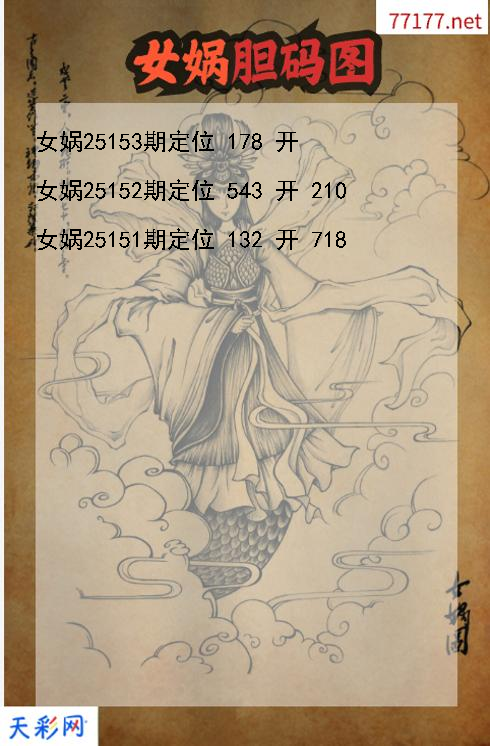 77177.net
女娲胆码图
女娲25153期定位 178 开
女娲25152期定位 543 开 210
女娲25151期定位 132 开 718
女娲图
天彩网